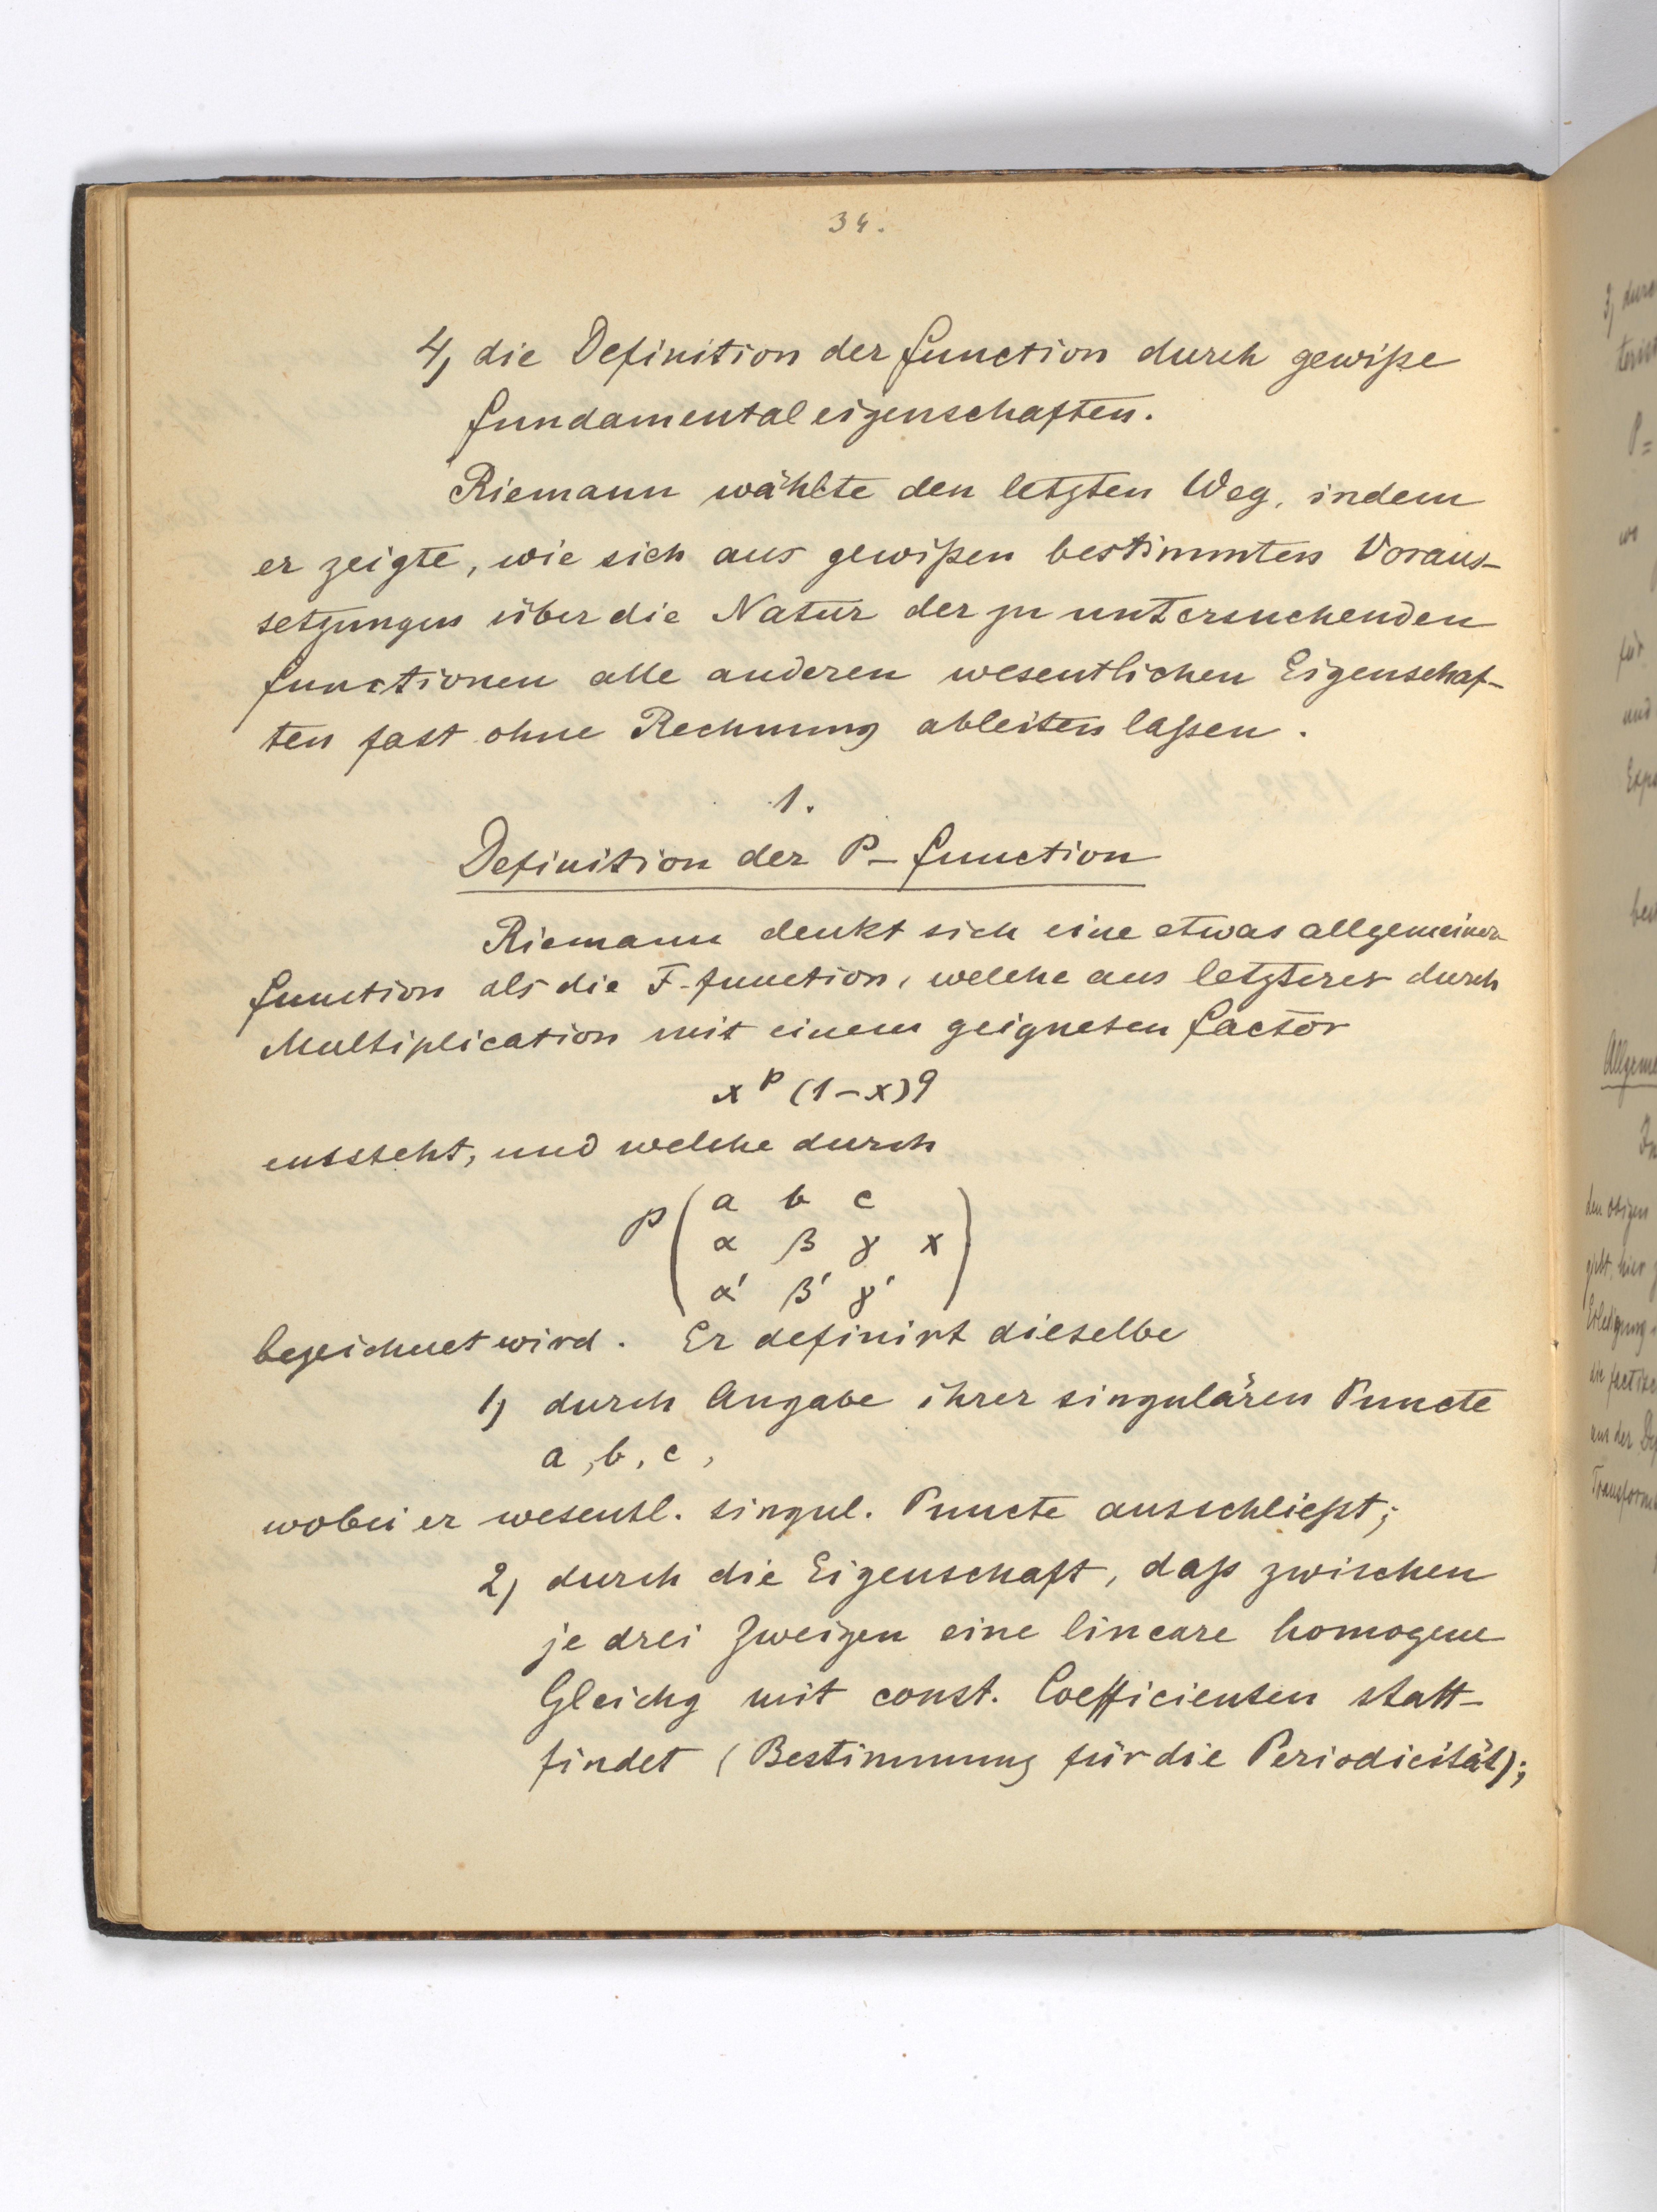 34.
4) die Definition der Function durch gewiße
Fundamentaleigenschaften.
Riemann wählte den letzten Weg, indem
er zeigte, wie sich aus gewißen bestimmten Voraus-
setzungen über die Natur der zu untersuchenden
Functionen alle anderen wesentlichen Eigenschaf-
ten fast ohne Rechnung ableiten laßen.
1.
Definition der P-Function
Riemann denkt sich eine etwas allgemeinere
Function als die F-Function, welche aus letzterer durch
Multiplication mit einem geigneten Factor
x^p (1-x)^q
entsteht, und welche durch
P ( a b c
α β γ x )
α' β' γ'
bezeichnet wird. Er definirt dieselbe
1) durch Angabe ihrer singulären Puncte
a, b, c,
wobei er wesentl. singul. Puncte ausschließt;
2) durch die Eigenschaft, daß zwischen
je drei Zweigen eine lineare homogene
Gleichg mit const. Coefficienten statt-
findet (Bestimmung für die Periodicität);
3) durc
P=
wo
für
und
Expo
Allgeme
In
den obigen
gibt, hier
Erledigung
die factisc
aus der De
Transforma